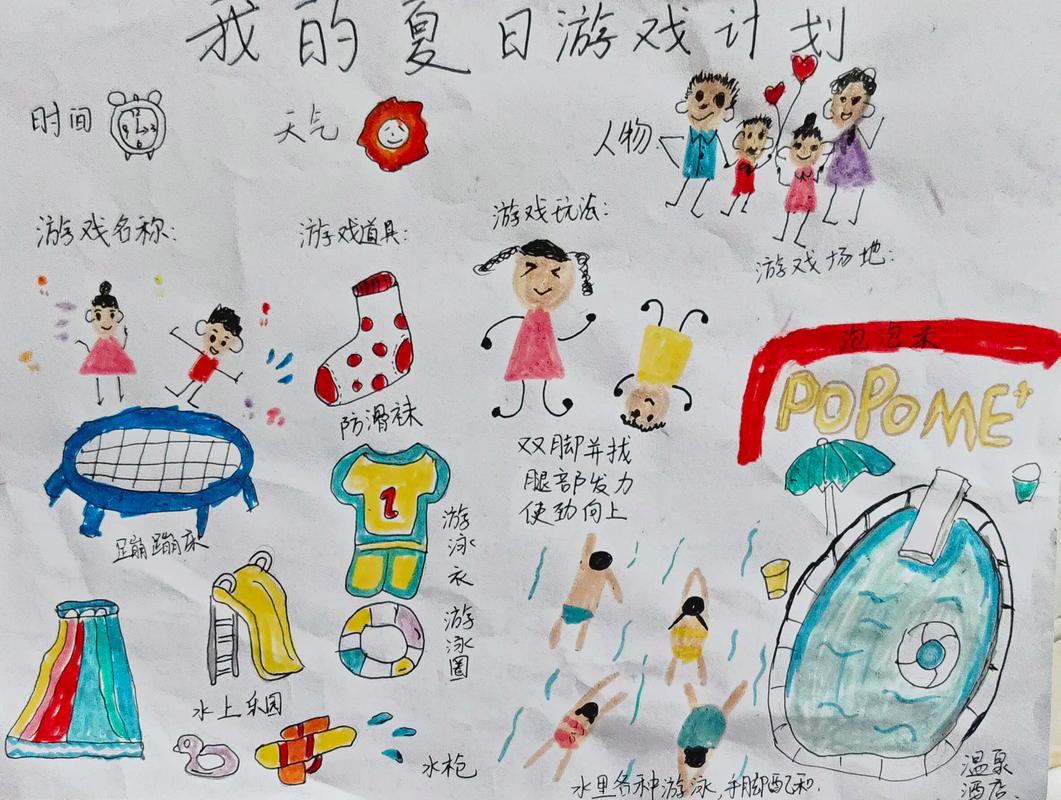 我的夏日游戏计划
时间
天气
人物
游戏名称:
游戏道具:
游戏玩法:
游戏场地:
泡泡未
POPOME+
防滑袜
双脚并找
腿部发力
使劲向上
蹦蹦床
1
游泳衣
游泳圈
水上乐园
水枪
水里各种游泳,手脚配和.
温泉
酒店.